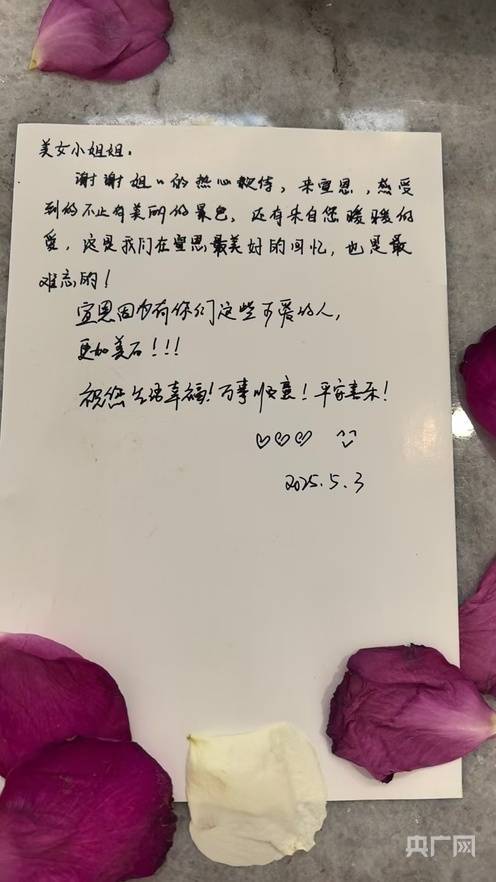 美女小姐姐:
谢谢姐姐的热心款待,来宣恩,感受
到的不止有美丽的景色,还有来自您暖暖的
爱,这是我们在宣恩最美好的回忆,也是最
难忘的!
宣恩因为有你们这些可爱的人,
更加美石!!!
祝您生活幸福!万事顺意!平安喜乐!
2025.5.3
央广网